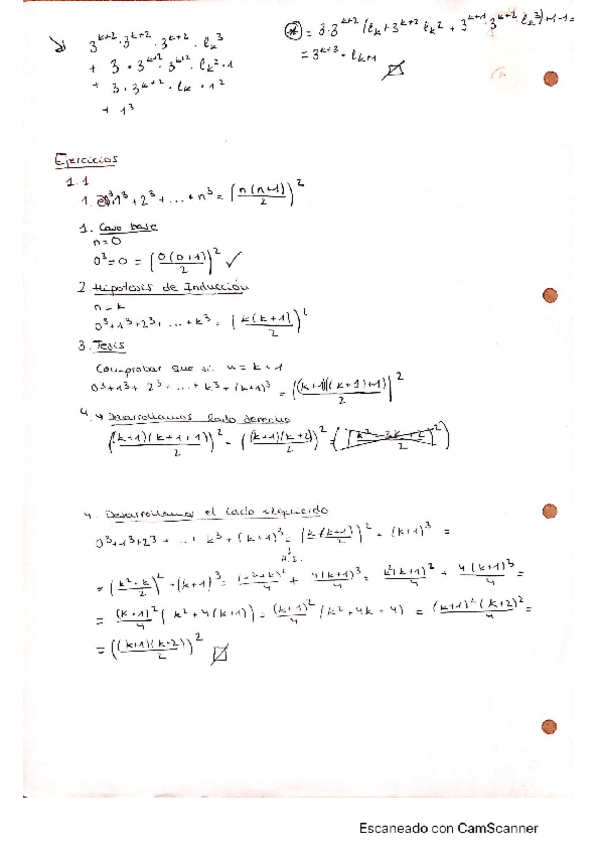 3^{k+2} · 3^{k+2} · 3^{k+2} · l_k^3
+ 3 · 3^{k+2} · 3^{k+2} · l_k^2 · 1
+ 3 · 3^{k+2} · l_k · 1^2
+ 1^3
(*) = 3·3^{k+2} (l_k + 3^{k+2} l_k^2 + 3^{k+1} · 3^{k+2} l_k^3) +1-1 =
= 3^{k+3} · l_{k+1}
Ejercicios
1.1
1. 0^3+1^3 + 2^3 + ... + n^3 = (n(n+1)/2)^2
1. Caso base
n=0
0^3=0 = (0(0+1)/2)^2 ✓
2. Hipótesis de Inducción
n=k
0^3+1^3+2^3+ ... +k^3 = (k(k+1)/2)^2
3. Tesis
Comprobar que si n=k+1
0^3+1^3+ 2^3+ ... + k^3 + (k+1)^3 = ((k+1)((k+1)+1)/2)^2
4. → Desarrollamos lado derecho
((k+1)(k+1+1)/2)^2 = ((k+1)(k+2)/2)^2
4. Desarrollamos el lado izquierdo
0^3+1^3+2^3 + ... + k^3 + (k+1)^3 = (k(k+1)/2)^2 + (k+1)^3 =
H.I.
= (k^2+k/2)^2 + (k+1)^3 = /4 + 4(k+1)^3/4 = k^2(k+1)^2/4 + 4(k+1)^3/4 =
= (k+1)^2/4 (k^2+4(k+1)) = (k+1)^2/4 (k^2+4k+4) = (k+1)^2(k+2)^2/4 =
= ((k+1)(k+2)/2)^2
Escaneado con CamScanner